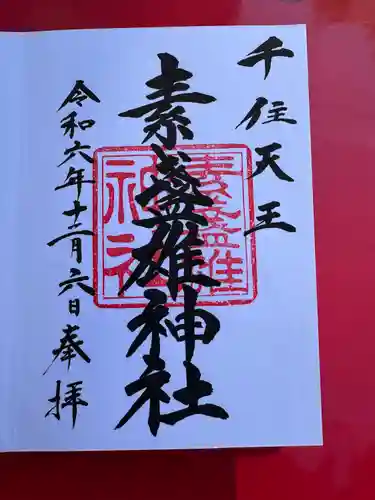 千住天王
素盞雄神社
令和六年十二月六日奉拝
素盞雄
神社